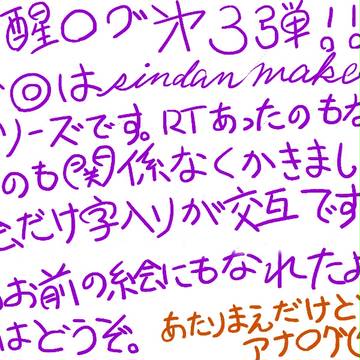 醒〇グ第33弾!!
今回はsindan make
リーズです。RTあったのもな
のも関係なくかきまし
絵だけ字入りが交互です
お前の絵にもなれたよ
はどうぞ。
あたりまえだけど
アナログ